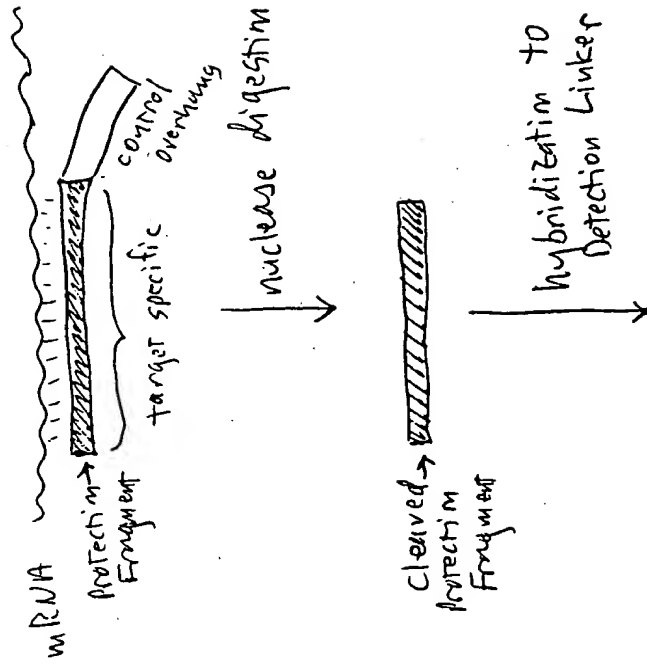 mRNA
Protection
Fragment
target specific
control
overhang
nuclease digestion
Cleaved
Protection
Fragment
hybridization to
Detection Linker